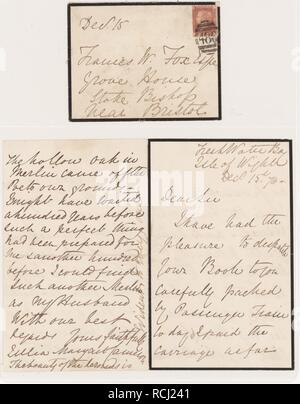 Dec 15
Francis W. Fox Esqre
Grove House
Stoke Bishop
near Bristol
466
The hollow oak in
Merlin cause of the
Poets own ground
I might have waited
a hundred years before
such a perfect thing
had been prepared for
me & another hundred
before I could find
Such another Merlin
as my Husband
With our best
regards Yours faithfully
Julia Margaret Cameron
The beauty of the
Freshwater Bay
Isle of Wight
Dec 15th
Dear Sir
I have had the
pleasure to despatch
Your Book to you
carefully packed
by Passenger Train
today & paid the
carriage as far
alamy
Image ID: RCJ241
www.alamy.com